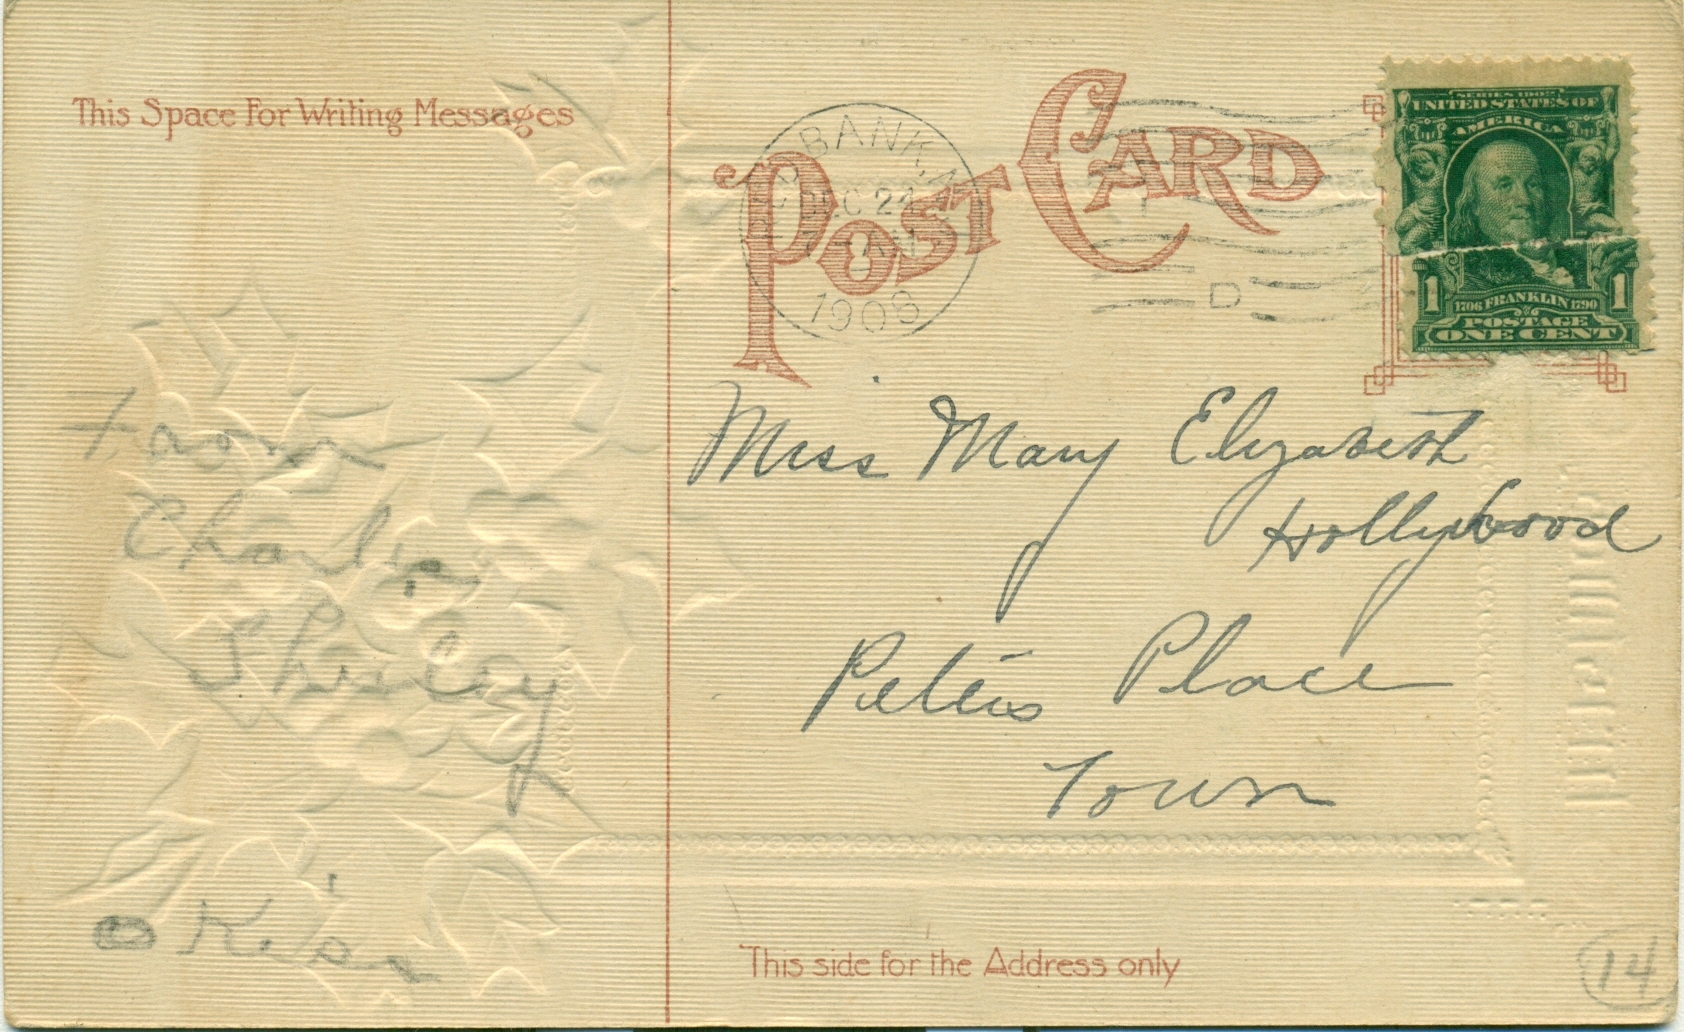 This Space For Writing Messages
POST CARD
RED BANK, N.J.
DEC 24
1908
D
SERIES 1902
UNITED STATES OF
AMERICA
1 1
1706 FRANKLIN 1790
POSTAGE
ONE CENT
From
Charley
Shirley
Miss Mary Elizabeth
Hollywood
Peters Place
Town
This side for the Address only
14